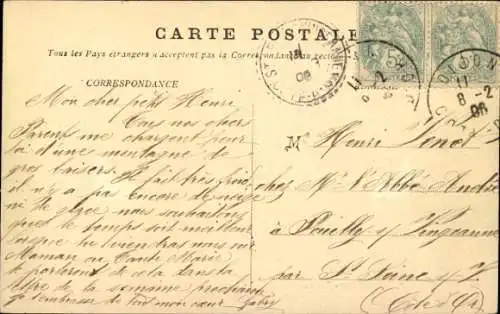 CARTE POSTALE
Tous les Pays étrangers n'acceptent pas la Correspondance au recto
CORRESPONDANCE
Mon cher petit Henri,
Tous nos chers
Parents me chargent pour
toi d'une montagne de
gros baisers. Il fait très froid
il n'y a pas encore de neige
ni de glace nous souhaitons
que le temps soit meilleur
lorsque tu viendras nous voir
Maman ou Tante Marie
te parleront de cela dans la
lettre de la semaine prochaine
Je t'embrasse de tout mon cœur Gaby
DIJON
11
8-2
06
Mr Henri
chez Mr l'Abbé
à Pouilly s/ Vingeanne
par St Seine s/ V.
(Côte d'Or)